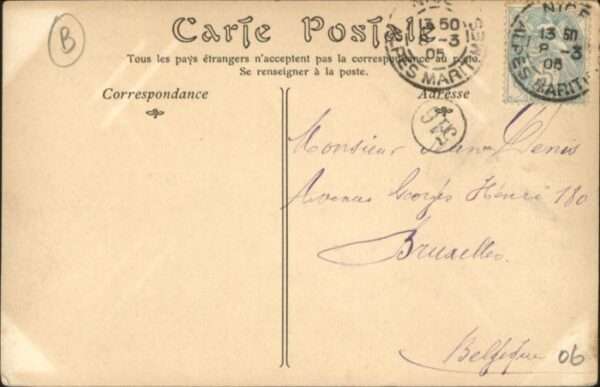 B
Carte Postale
NICE
13 50
8 -3
05
ALPES MARITIMES
NICE
13 50
8 -3
05
ALPES MARITIM
Tous les pays étrangers n'acceptent pas la correspondance au recto.
Se renseigner à la poste.
Correspondance
Adresse
Monsieur Jean Denis
Avenue Georges Henri 180
Bruxelles.
Belgique
06